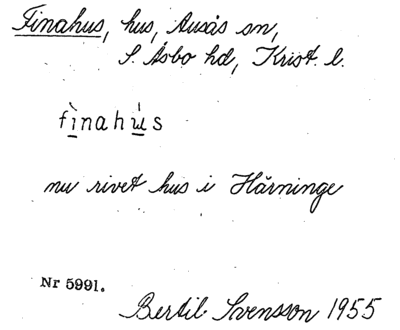 Finahus, hus, Ausås sn,
S. Åsbo hd, Krist. l.
fì̱nahú̱s
nu rivet hus i Härninge
Nr 5991.
Bertil Svensson 1955